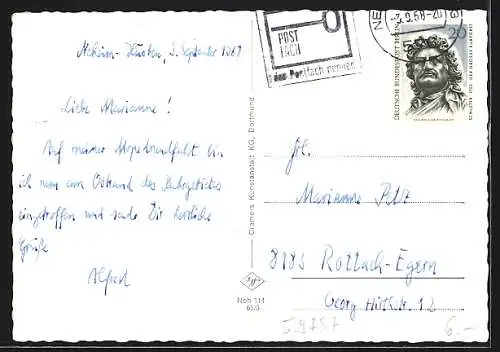 Neheim-Hüsten, 2. September 1968
Liebe Marianne!
Auf meiner Mopedrundfahrt bin
ich nun am Ostrand des Ruhrgebietes
eingetroffen und sende Dir herzliche
Grüße
Alfred
POST
FACH
das Postfach nennen
NE
-3.9.68-20
20
DEUTSCHE BUNDESPOST BERLIN
Cramers Kunstanstalt KG, Dortmund
Agfa
Neh 114
Frl.
Marianne Petz
8183 Rottach-Egern
Georg Hirth-Str. 12
59757
6.-